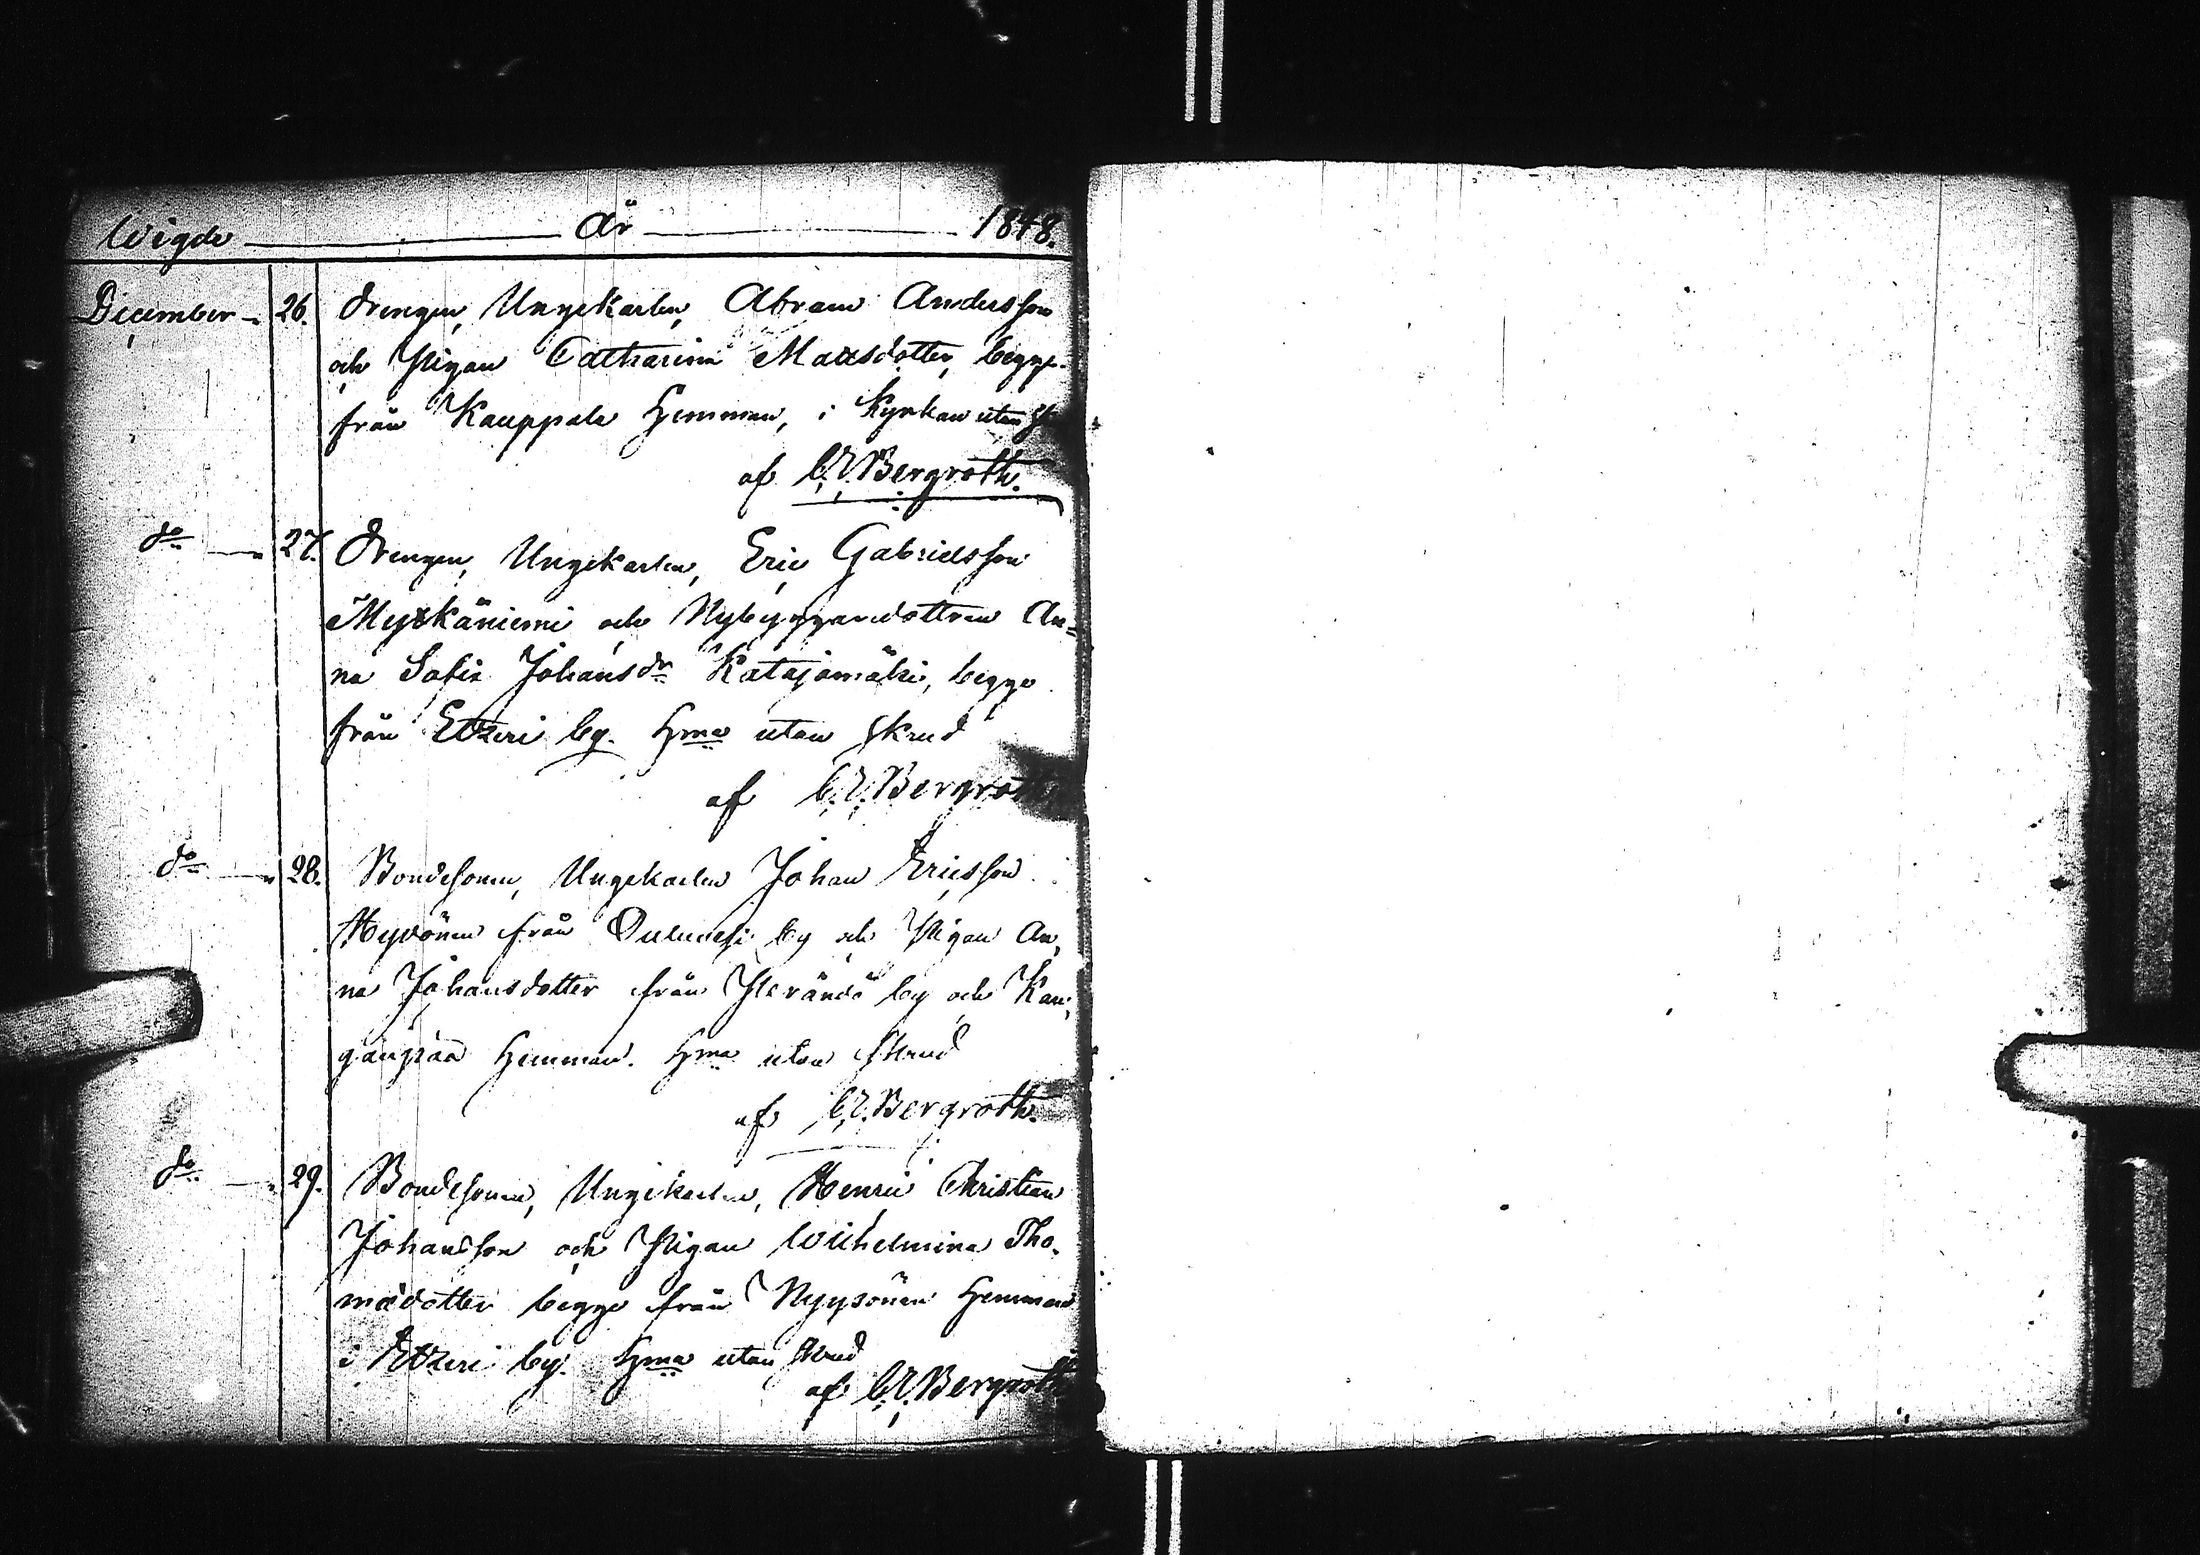 Wigde År 1848.
December 26. Drengen, Ungekarlen, Abram Andersson
och Pigan Catharina Mattsdotter, begge
från Kauppala Hemman, i Kyrkan utan
af C.E. Bergroth.
do 27. Drengen, Ungekarlen, Eric Gabrielsson
Myrkäniemi och Nybyggaredottren An=
na Sofia Johansdr Katajamäki, begge
från Etzeri by. Hma utan skrud
af C.E. Bergroth
do 28. Bondesonen, Ungekarlen Johan Ericsson
Hyvönen från by och Pigan An,
na Johansdotter från Peränδε by och Kan,
gaspää Hemman. Hma utan skrud
af C.E. Bergroth.
do 29. Bondesonen, Ungekarlen, Henric Christian
Johansson och Pigan Wilhelmina Tho,
mædotter begge från Nyysönen Hemman
i Etzeri by. Hma utan skrud
af C.E. Bergroth